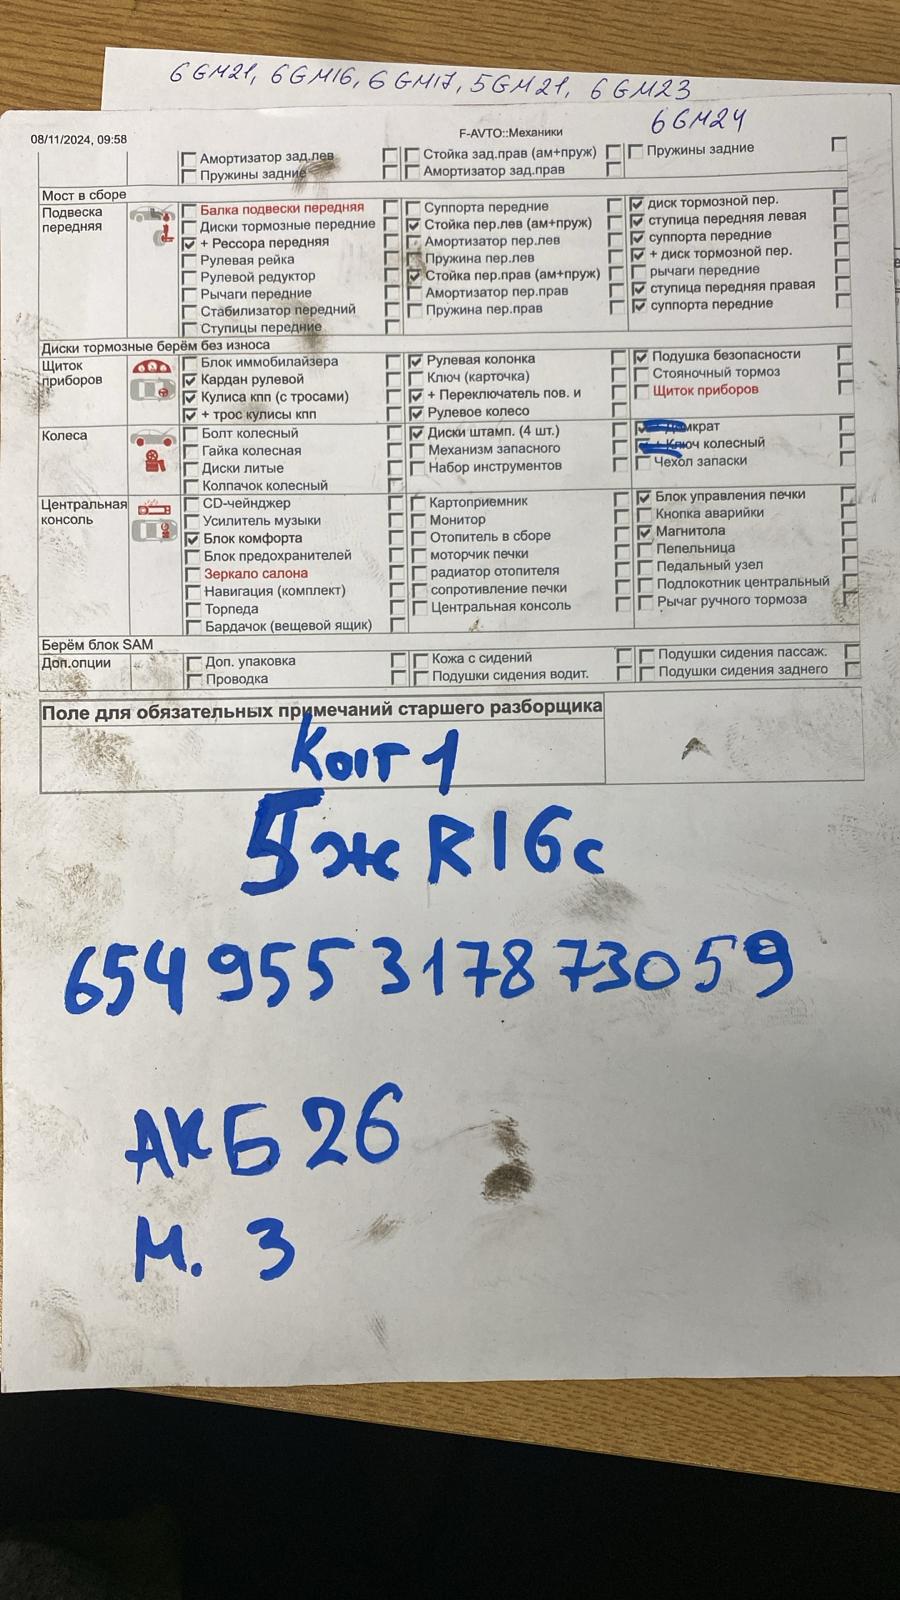 6GM21, 6GM16, 6GM17, 5GM21, 6GM23
6GM24
08/11/2024, 09:58 F-AVTO::Механики
Амортизатор зад.лев Стойка зад.прав (ам+пруж) Пружины задние
Пружины задние Амортизатор зад.прав
Мост в сборе
Подвеска передняя
Балка подвески передняя Суппорта передние диск тормозной пер.
Диски тормозные передние Стойка пер.лев (ам+пруж) ступица передняя левая
+ Рессора передняя Амортизатор пер.лев суппорта передние
Рулевая рейка Пружина пер.лев + диск тормозной пер.
Рулевой редуктор Стойка пер.прав (ам+пруж) рычаги передние
Рычаги передние Амортизатор пер.прав ступица передняя правая
Стабилизатор передний Пружина пер.прав суппорта передние
Ступицы передние
Диски тормозные берём без износа
Щиток приборов
Блок иммобилайзера Рулевая колонка Подушка безопасности
Кардан рулевой Ключ (карточка) Стояночный тормоз
Кулиса кпп (с тросами) + Переключатель пов. и Щиток приборов
+ трос кулисы кпп Рулевое колесо
Колеса
Болт колесный Диски штамп. (4 шт.) + Домкрат
Гайка колесная Механизм запасного + Ключ колесный
Диски литые Набор инструментов Чехол запаски
Колпачок колесный
Центральная консоль
CD-чейнджер Картоприемник Блок управления печки
Усилитель музыки Монитор Кнопка аварийки
Блок комфорта Отопитель в сборе Магнитола
Блок предохранителей моторчик печки Пепельница
Зеркало салона радиатор отопителя Педальный узел
Навигация (комплект) сопротивление печки Подлокотник центральный
Торпеда Центральная консоль Рычаг ручного тормоза
Бардачок (вещевой ящик)
Берём блок SAM
Доп.опции
Доп. упаковка Кожа с сидений Подушки сидения пассаж.
Проводка Подушки сидения водит. Подушки сидения заднего
Поле для обязательных примечаний старшего разборщика
1
5ж R16с
654 955 3178 73059
АКБ 26
М. 3